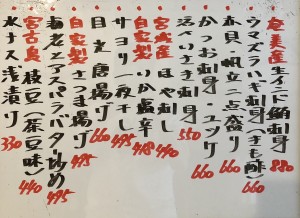 奄美産 生インド鮪刺身 880
ウマズラハギ刺身(きも酢) 660
赤貝・帆立二点盛り 660
かつお刺身・ユッケ 660
活〆いさき刺身 550
宮城産 ほや刺し 495
自家製 いか塩辛 418
サヨリ一夜干し 495
目光唐揚げ 660
自家製さつま揚げ 495
海老とアスパラバター炒め 495
宮古島 枝豆(茶豆味) 440
水ナス浅漬け 330